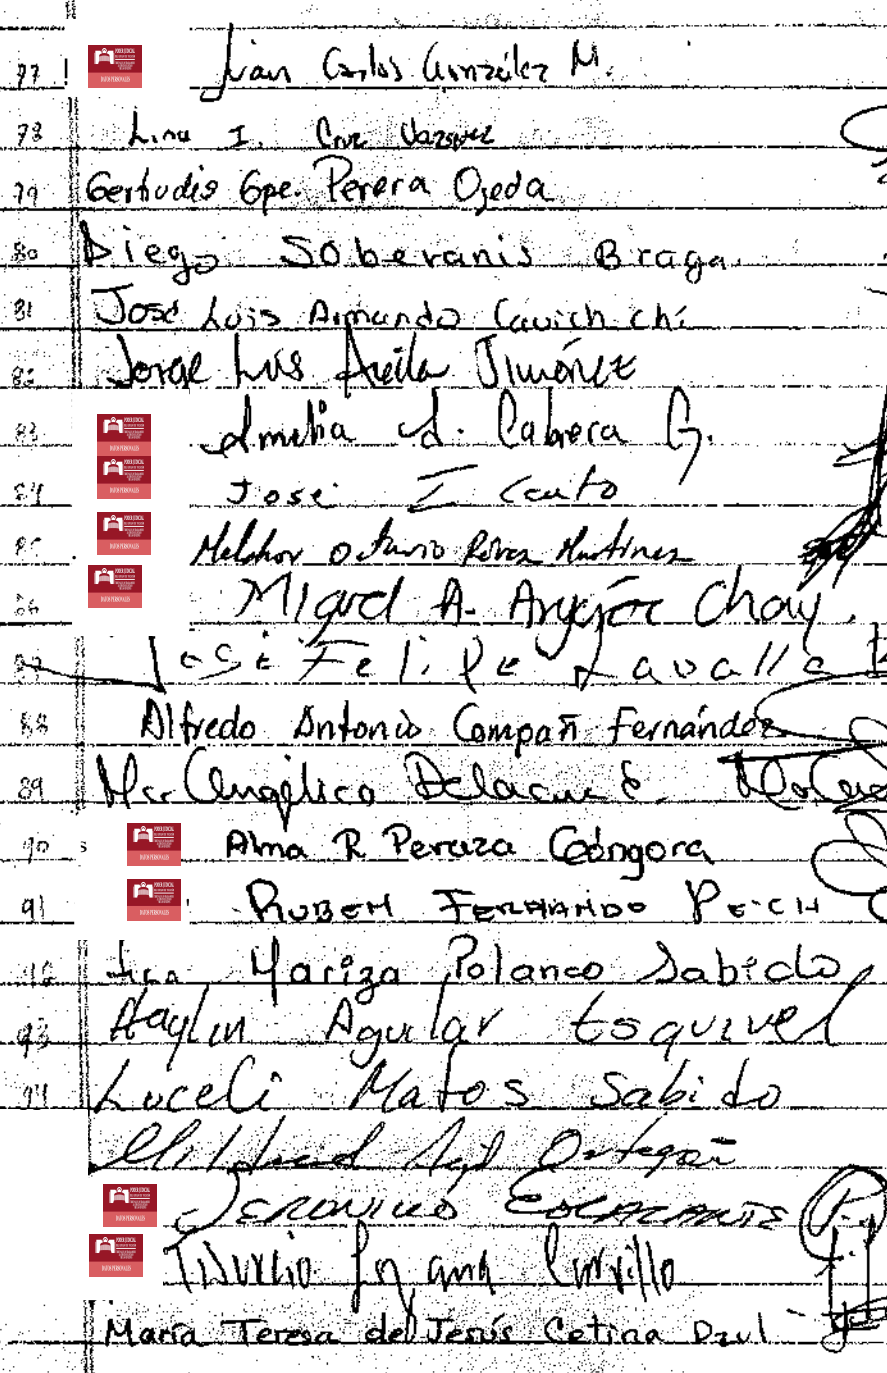 77 Juan Carlos González M.
78 Lina I. Cruz Vazquez
79 Gertudis Gpe. Perera Ojeda
80 Diego Soberanis Braga.
81 José Luis Armando Cauich chi
82 Jorge Luis Avila Jiménez
83 Amelia A. Cabrera G.
84 José I Cauto
85 Melchor Octavio Martinez
86 Miguel A. Chay.
87 José Felipe Lavalle
88 Alfredo Antonio Compañ Fernández
89 Ma. Angélica Delacruz
90 Alma R Peraza Góngora
91 RUBEN FERNANDO PECH
92 Mariza Polanco Sabido
93 Haylin Aguilar Esquivel
94 Luceli Matos Sabido
Mildred Ortegón
JERONIMO ESCALANTE
Tiburcio Carrillo
María Teresa del Jesús Cetina Dzul